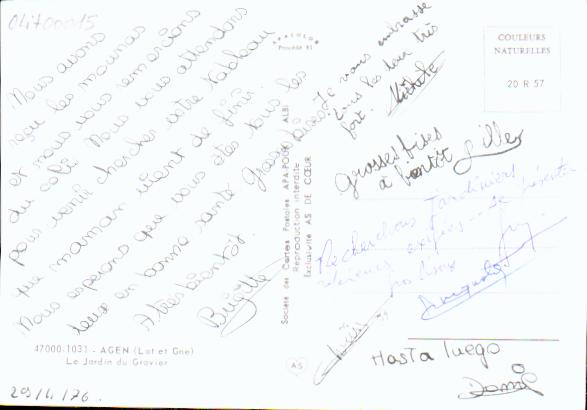 04700015
Nous avons
reçu les mounas
et nous vous remercions
du colis. Nous vous attendons
pour venir chercher votre tableau
que maman vient de finir.
Nous esperons que vous êtes tous les
deux en bonne santé. Gros bises
A très bientôt.
Brigitte
Je vous embrasse
tous les deux très
fort. Michèle
Grosses bises
à bientôt Gilles
Recherchons Jardiniers
sérieux se présenter
Hasta luego
APACOLOR
Procédé 81
Société des Cartes Postales APA-POUX - ALBI
Reproduction interdite
Exclusivité AS DE CŒUR
COULEURS
NATURELLES
20 R 57
47000-1031 - AGEN (Lot et Gne)
Le Jardin du Gravier
AS
29/4/76.